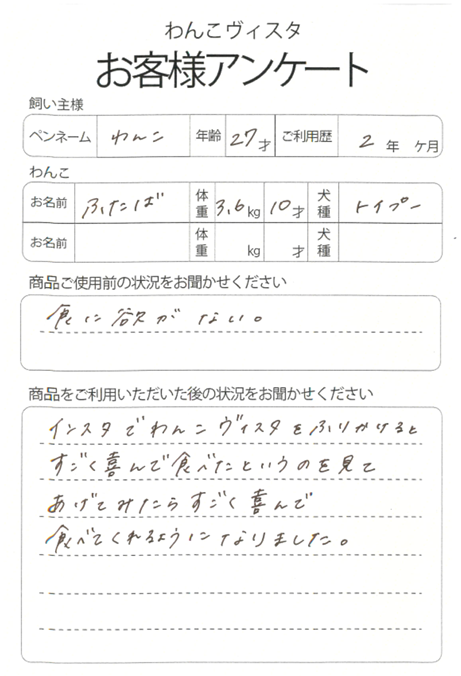 わんこヴィスタ
お客様アンケート
飼い主様
ペンネーム わんこ 年齢 27才 ご利用歴 2年 ケ月
わんこ
お名前 ふたば 体重 3.6kg 10才 犬種 トイプー
お名前 体重 kg 才 犬種
商品ご使用前の状況をお聞かせください
食に欲がない。
商品をご利用いただいた後の状況をお聞かせください
インスタでわんこヴィスタをふりかけると
すごく喜んで食べたというのを見て
あげてみたらすごく喜んで
食べてくれるようになりました。